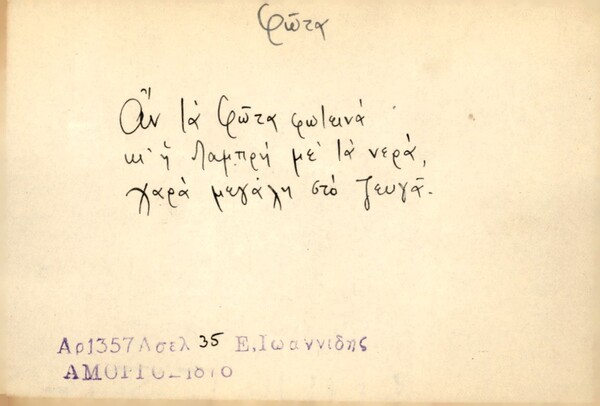 Φῶτα
Ἂν τὰ Φῶτα φωτεινά
κι' ἡ Λαμπρή με' τὰ νερά,
χαρὰ μεγάλη στὸ ζευγᾶ.
Αρ1357Ασελ 35 Ε,Ιωαννιδης
ΑΜΟΡΓΟΣ1876